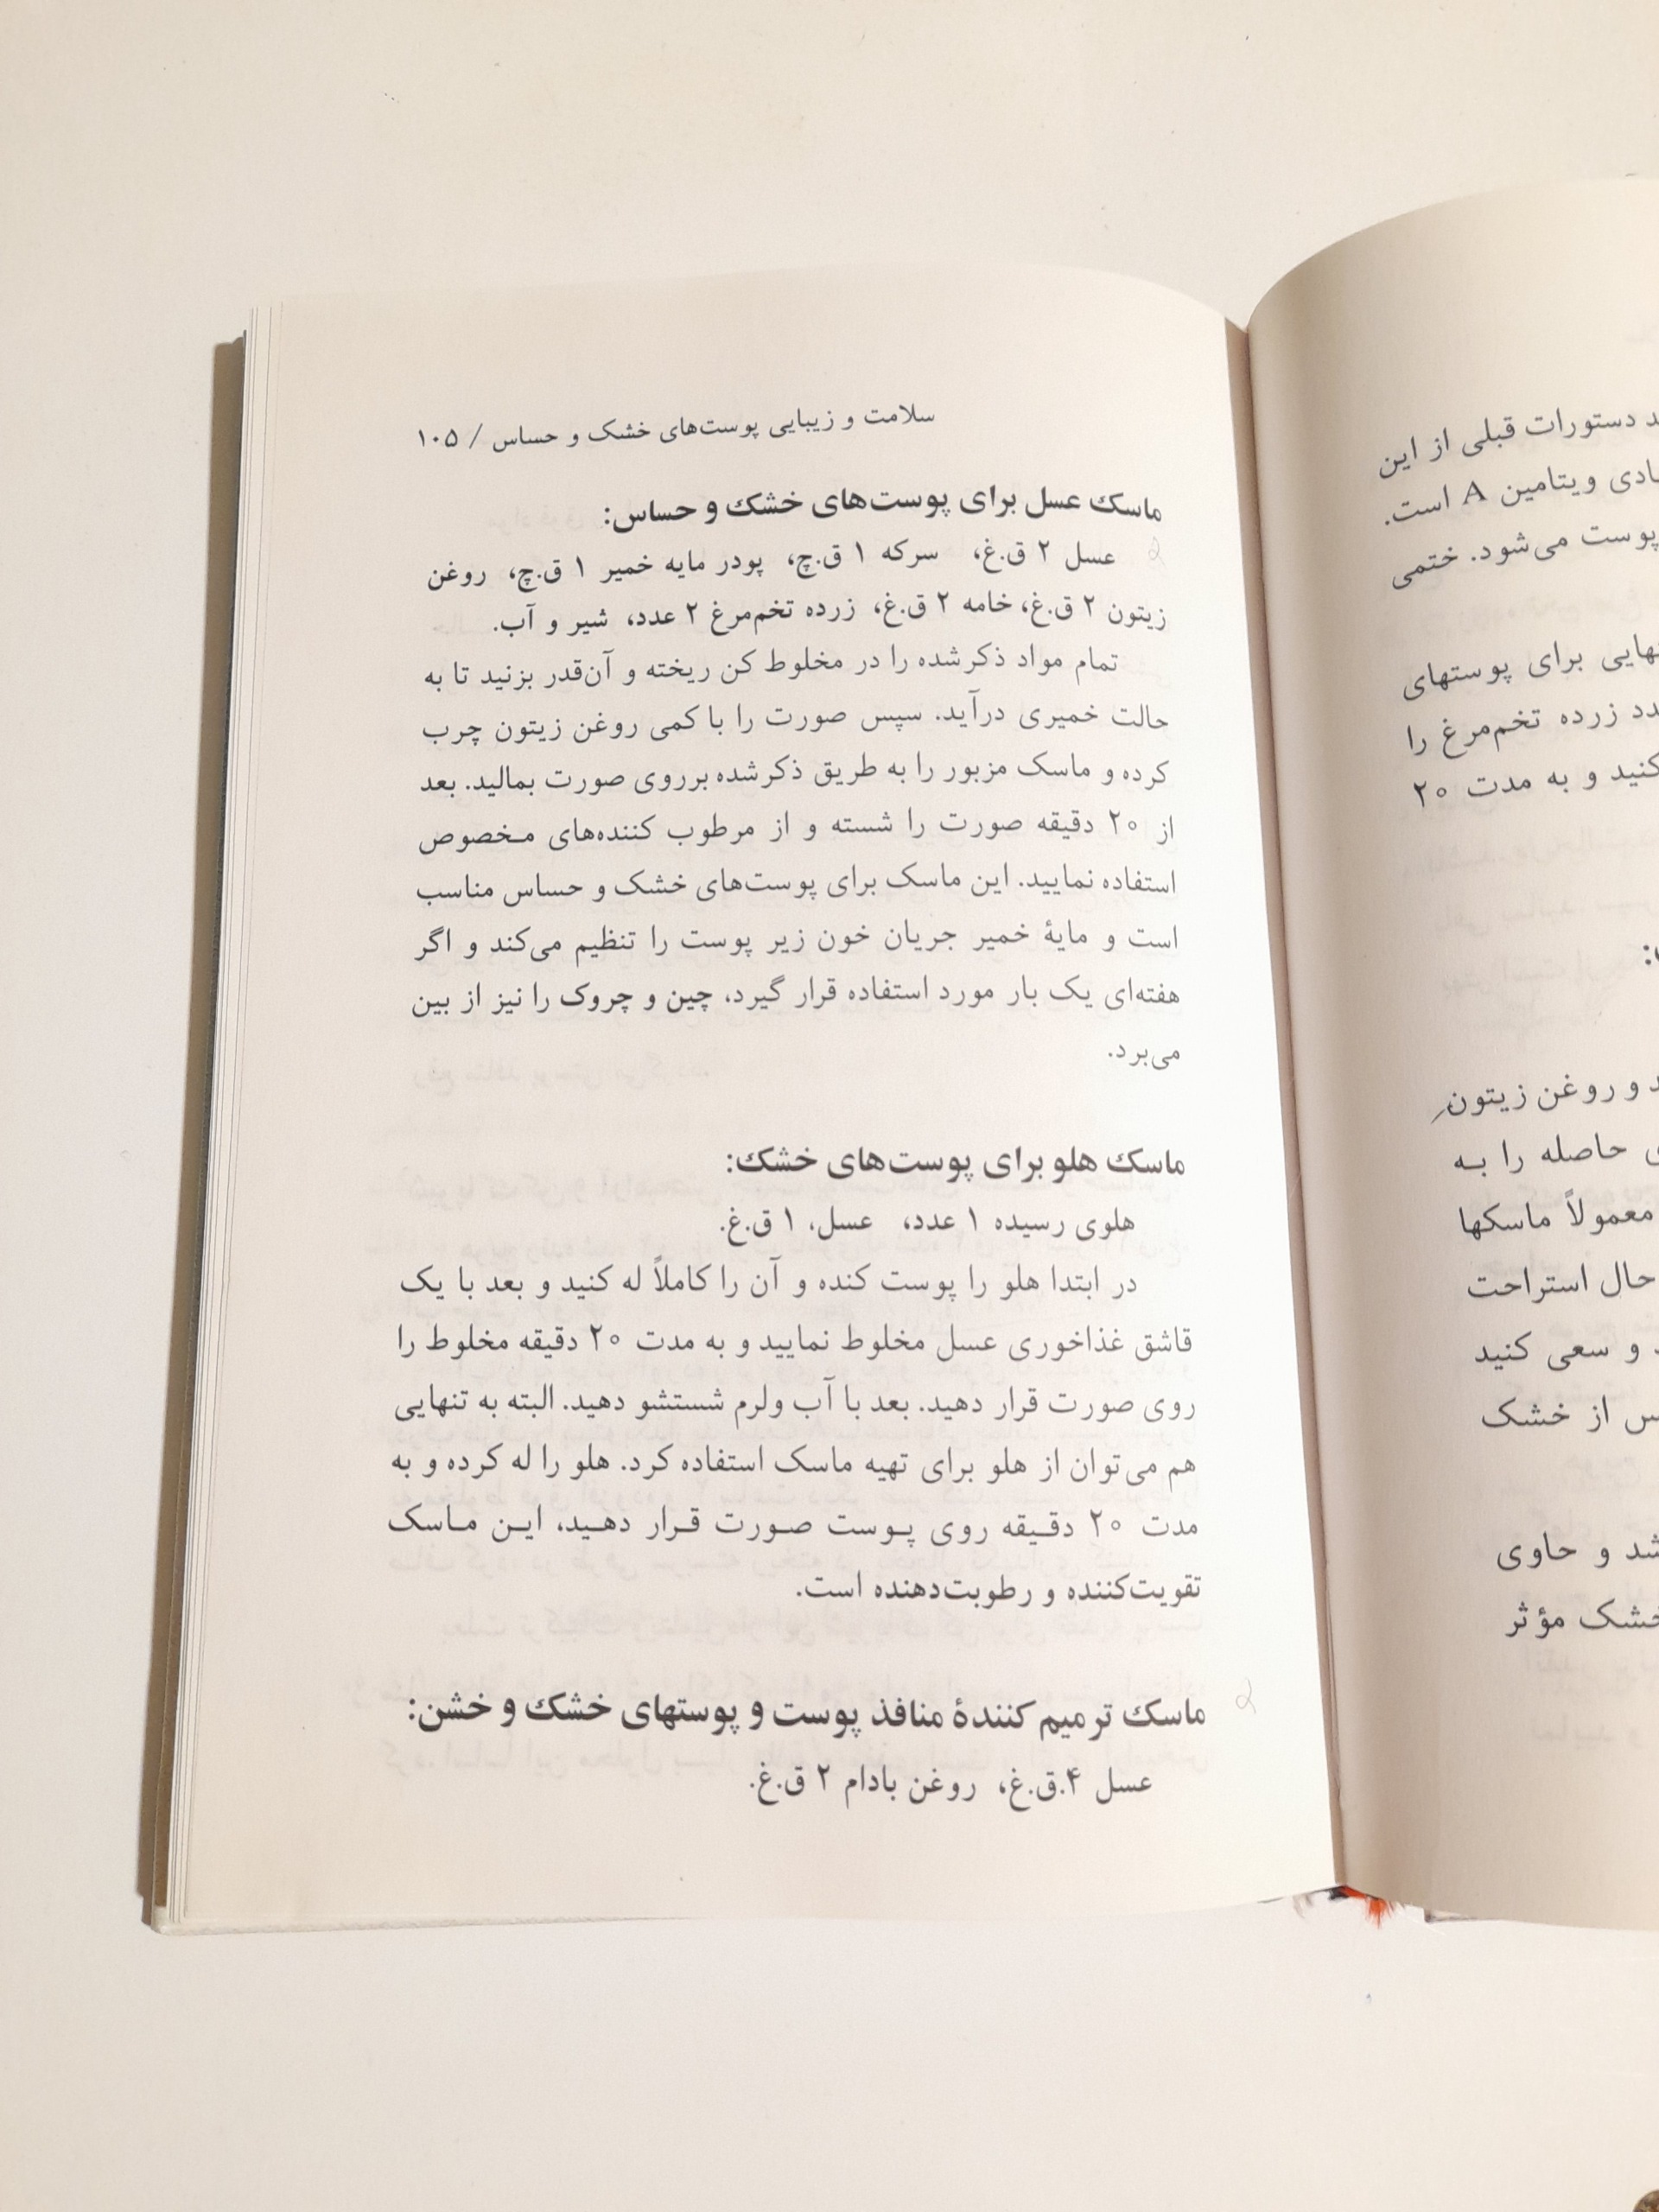 سلامت و زیبایی پوست‌های خشک و حساس / ۱۰۵
ماسک عسل برای پوست‌های خشک و حساس:
عسل ۲ ق.غ، سرکه ۱ ق.چ، پودر مایه خمیر ۱ ق.چ، روغن
زیتون ۲ ق.غ، خامه ۲ ق.غ، زرده تخم‌مرغ ۲ عدد، شیر و آب.
تمام مواد ذکرشده را در مخلوط کن ریخته و آن‌قدر بزنید تا به
حالت خمیری درآید. سپس صورت را با کمی روغن زیتون چرب
کرده و ماسک مزبور را به طریق ذکرشده برروی صورت بمالید. بعد
از ۲۰ دقیقه صورت را شسته و از مرطوب کننده‌های مخصوص
استفاده نمایید. این ماسک برای پوست‌های خشک و حساس مناسب
است و مایهٔ خمیر جریان خون زیر پوست را تنظیم می‌کند و اگر
هفته‌ای یک بار مورد استفاده قرار گیرد، چین و چروک را نیز از بین
می‌برد.
ماسک هلو برای پوست‌های خشک:
هلوی رسیده ۱ عدد، عسل، ۱ ق.غ.
در ابتدا هلو را پوست کنده و آن را کاملاً له کنید و بعد با یک
قاشق غذاخوری عسل مخلوط نمایید و به مدت ۲۰ دقیقه مخلوط را
روی صورت قرار دهید. بعد با آب ولرم شستشو دهید. البته به تنهایی
هم می‌توان از هلو برای تهیه ماسک استفاده کرد. هلو را له کرده و به
مدت ۲۰ دقیقه روی پوست صورت قرار دهید، این ماسک
تقویت‌کننده و رطوبت‌دهنده است.
ماسک ترمیم کنندهٔ منافذ پوست و پوستهای خشک و خشن:
عسل ۴.ق.غ، روغن بادام ۲ ق.غ.
دستورات قبلی از این
ویتامین A است.
پوست می‌شود. ختمی
برای پوستهای
زرده تخم‌مرغ را
کنید و به مدت ۲۰
و روغن زیتون
حاصله را به
معمولاً ماسکها
حال استراحت
و سعی کنید
از خشک
و حاوی
خشک مؤثر